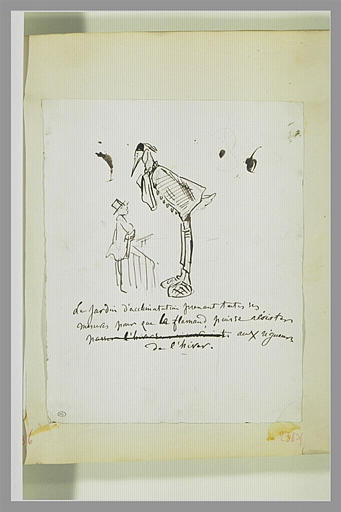 Le Jardin d'acclimatation prenant toutes ses
mesures pour que le flamand, puisse résister
passer l'hiver aux rigueurs
de l'hiver.